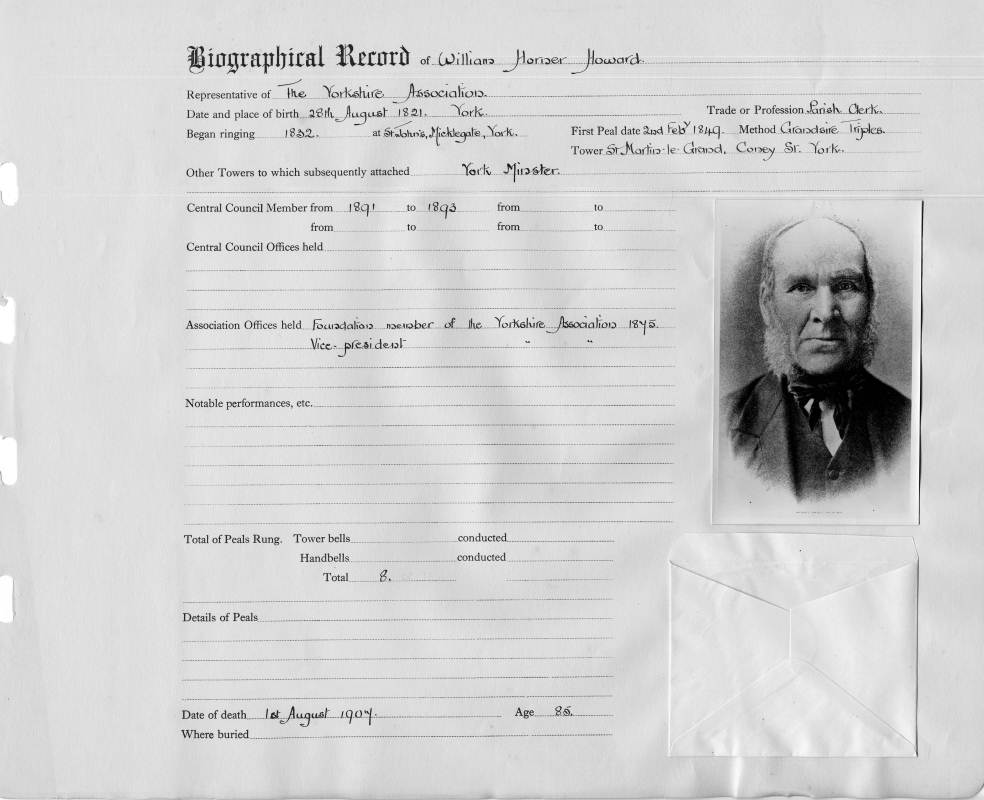 Biographical Record of William Horner Howard.
Representative of The Yorkshire Association.
Date and place of birth 28th August 1821. York. Trade or Profession Parish Clerk.
Began ringing 1832. at St John's, Micklegate, York. First Peal date 2nd Feby 1849. Method Grandsire Triples.
Tower St. Martin-le-Grand, Coney St. York.
Other Towers to which subsequently attached York Minster.
Central Council Member from 1891 to 1893 from to
from to from to
Central Council Offices held
Association Offices held Foundation member of the Yorkshire Association 1875.
Vice-president " "
Notable performances, etc.
Total of Peals Rung. Tower bells conducted
Handbells conducted
Total 8.
Details of Peals
Date of death 1st August 1907. Age 85.
Where buried